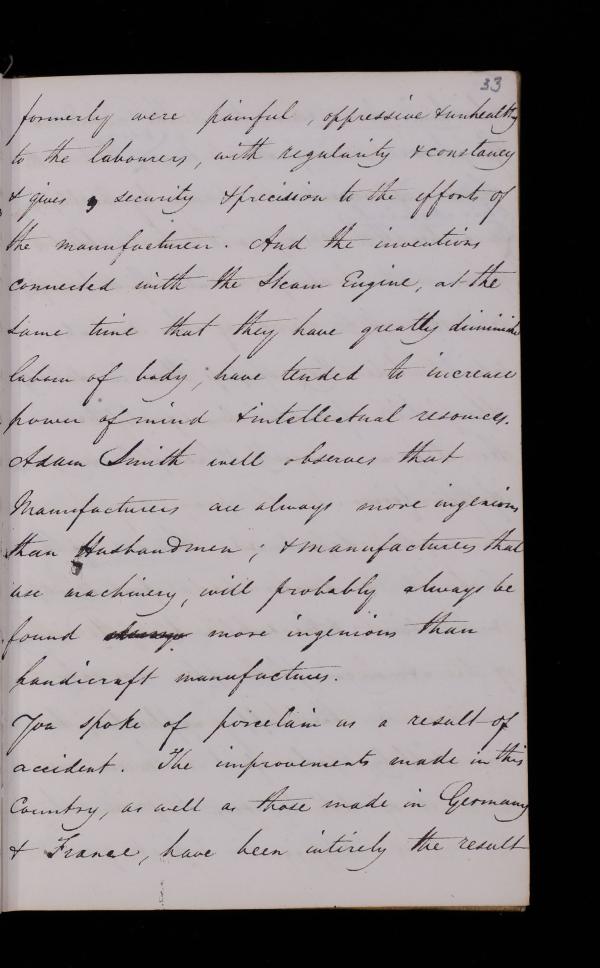 33
formerly were painful, oppressive & unhealthy
to the labourers, with regularity & constancy
& gives, security & precision to the efforts of
the manufacturer. And the inventions
connected with the Steam Engine, at the
same time that they have greatly diminish
labour of body, have tended to increase
power of mind & intellectual resources.
Adam Smith well observes that
Manufacturers are always more ingenious
than Husbandmen; & manufacturers that
use machinery, will probably always be
found more ingenious than
handicraft manufacturers.
You spoke of porcelain as a result of
accident. The improvements made in this
Country, as well as those made in Germany
& France, have been intirely the result